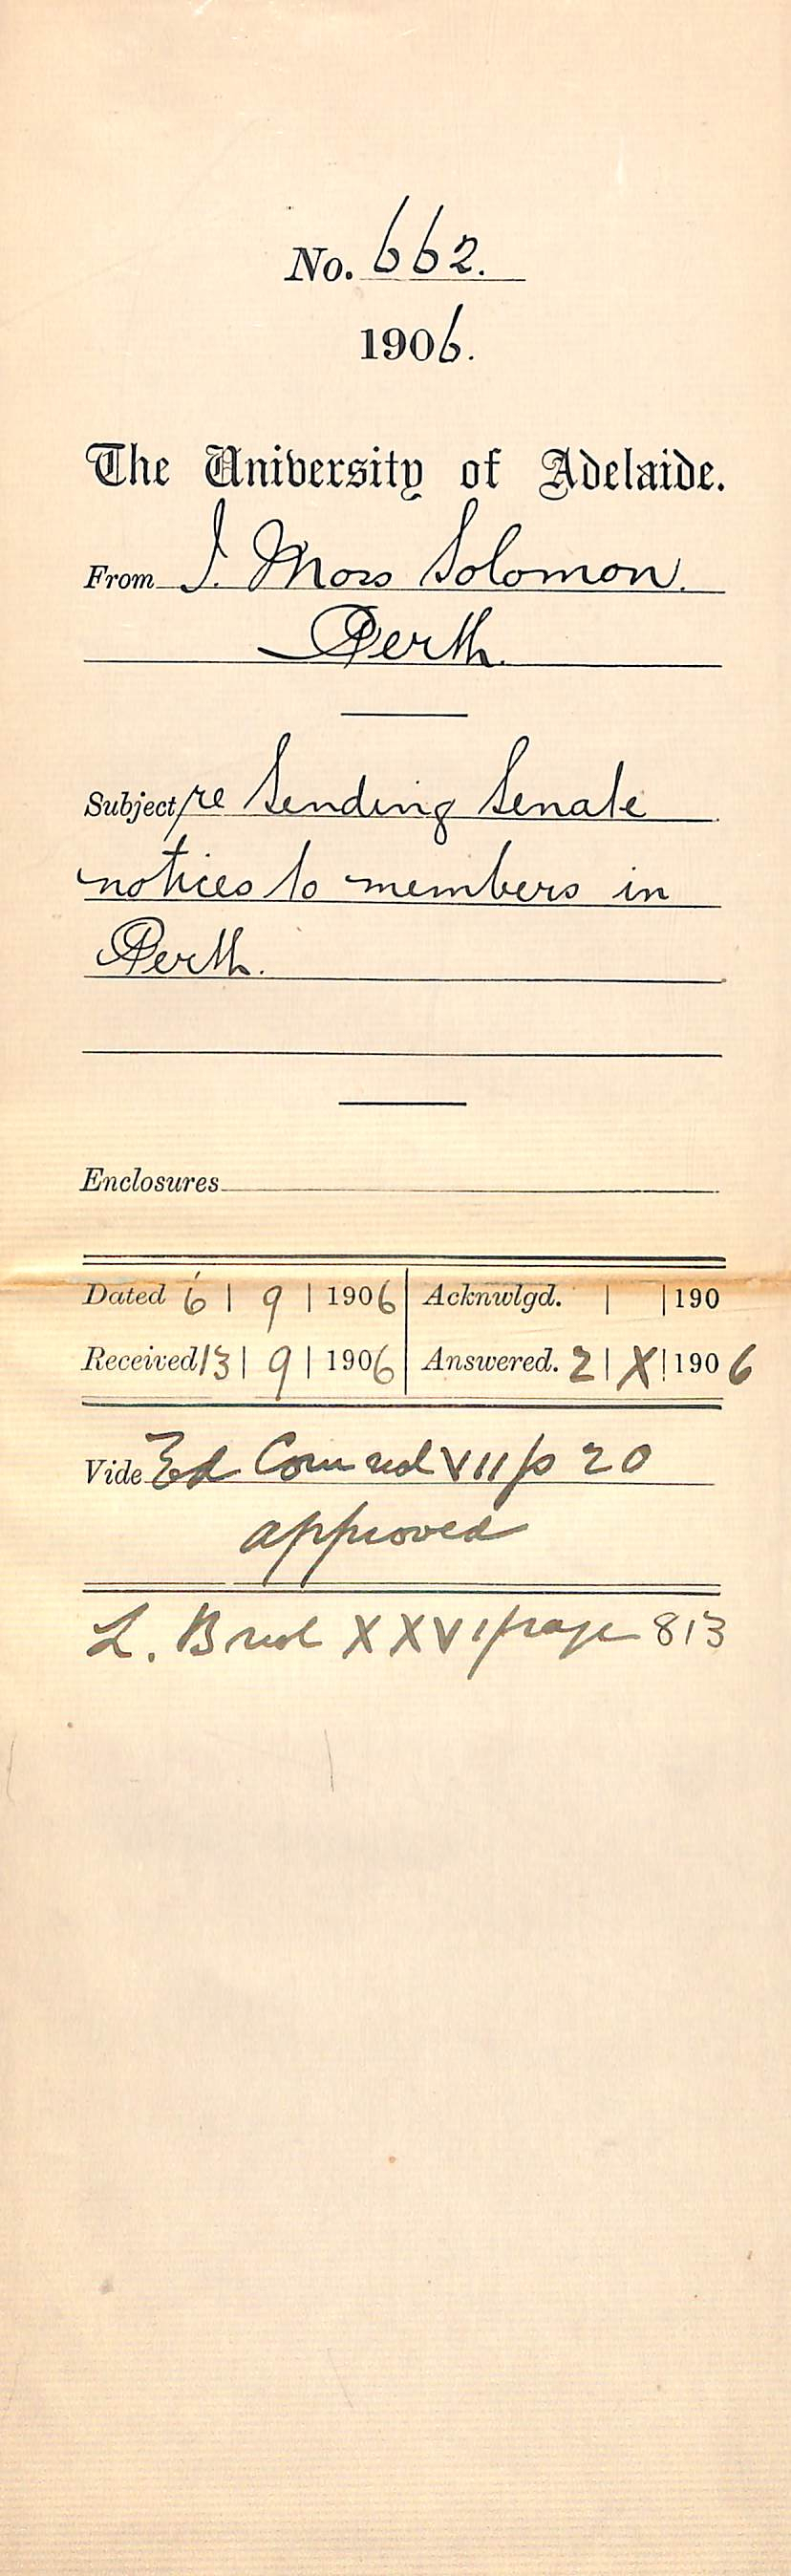 No. 662.
1906.
The University of Adelaide.
From I. Moss Solomon.
Perth.
Subject, re Sending Senate
notices to members in
Perth.
Enclosures
Dated 6 | 9 | 1906 Acknwlgd. | | 190
Received 13 | 9 | 1906 Answered. 2 | X | 1906
Vide Ed Com vol VII p 20
approved
L. B vol XXVI page 813